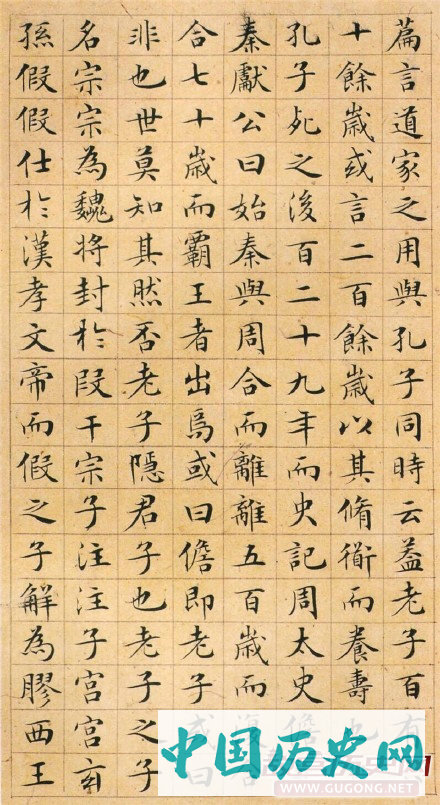 篇言道家之用與孔子同時云葢老子百
十餘歲或言二百餘歲以其脩衟而養壽
孔子死之後百二十九年而史記周太史
秦獻公曰始秦與周合而離離五百歲而
合七十歲而霸王者出焉或曰儋即老子
非也世莫知其然否老子隱君子也老子之子
名宗宗為魏將封於段干宗子注注子宮宮玄
孫假假仕於漢孝文帝而假之子解為膠西王
中国历史网
WWW.GUGONG.NET